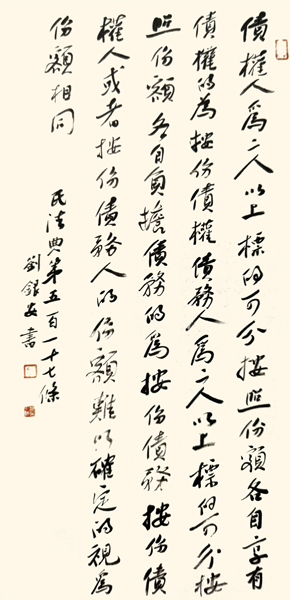 債權人爲二人以上標的可分按照份額各自享有
債權的爲按份債權債務人爲二人以上標的可分按
照份額各自負擔債務的爲按份債務按份債
權人或者按份債務人的份額難以確定的視爲
份額相同
民法典第五百一十七條
劉銀安書